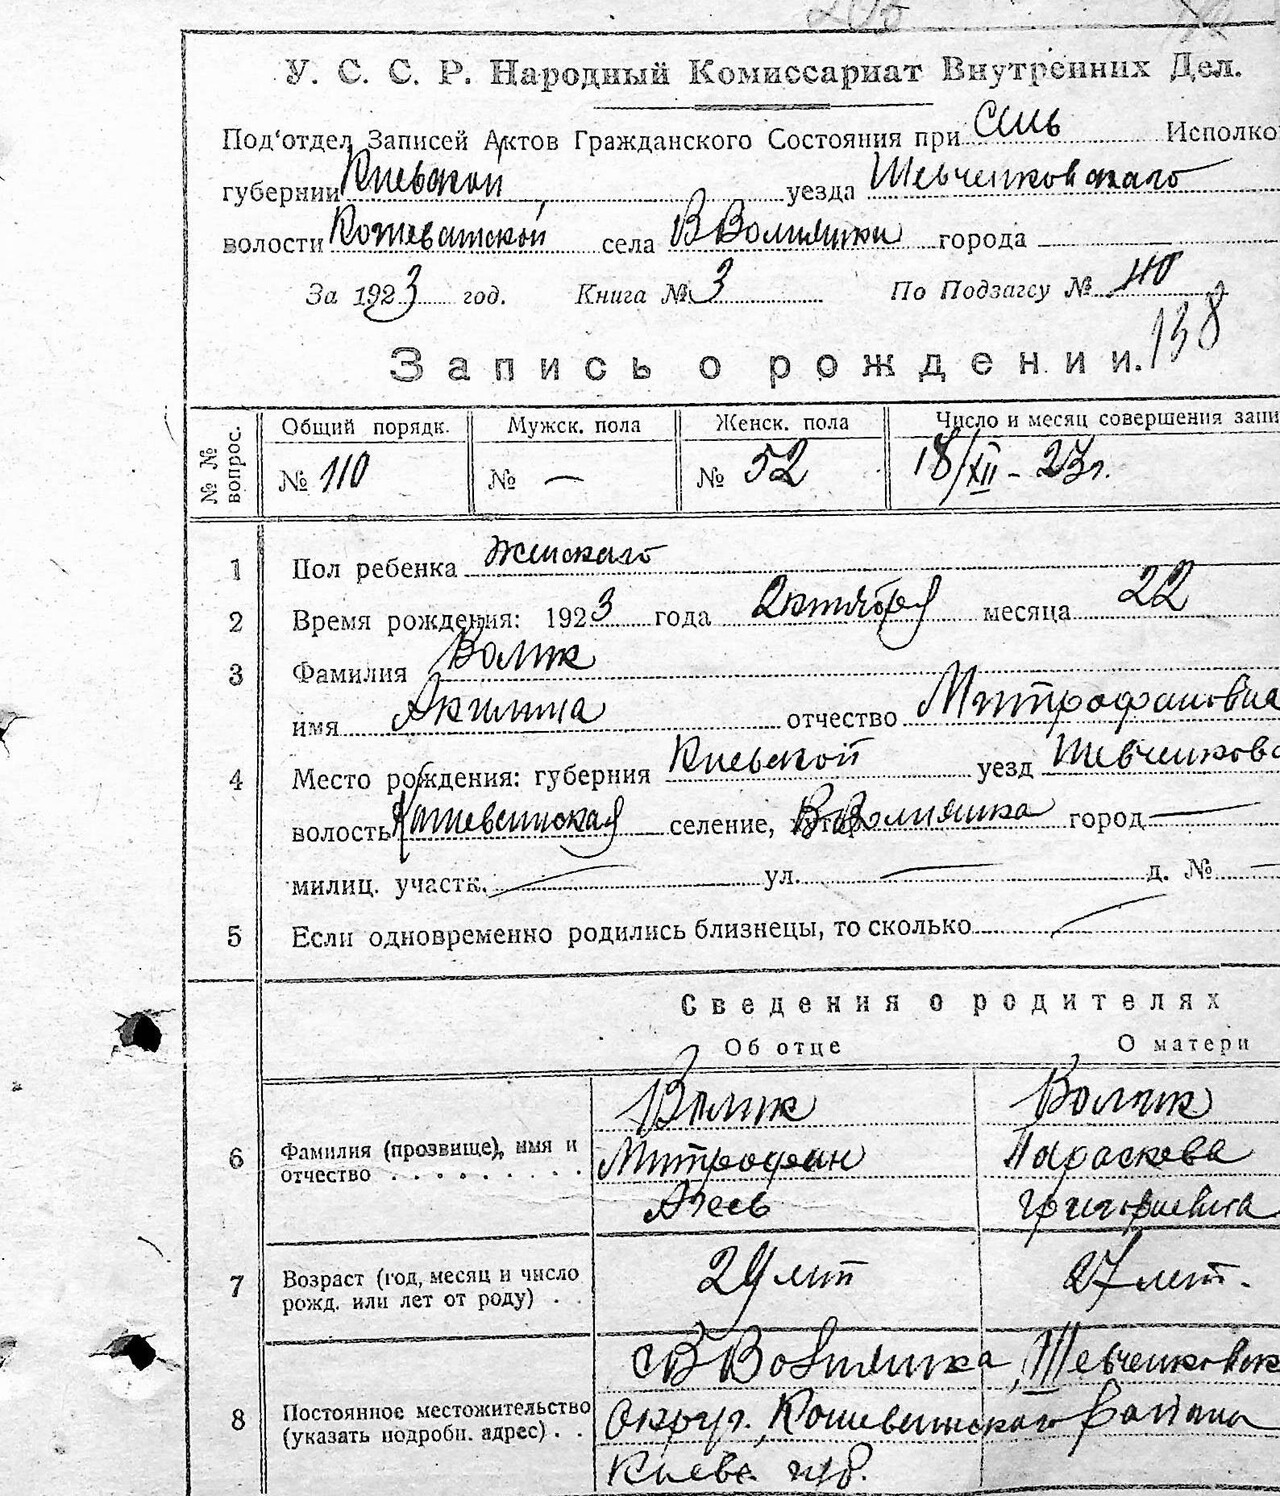 У. С. С. Р. Народный Комиссариат Внутренних Дел.
Под'отдел Записей Актов Гражданского Состояния при Сель Исполко
губернии Киевской уезда Шевченковскаго
волости села города
За 1923 год. Книга № 3 По Подзагсу № 110
138
Запись о рождении.
№ № вопрос. Общий порядк. Мужск. пола Женск. пола Число и месяц совершения запи
№ 110 № — № 52 18/XII - 23 г.
1 Пол ребенка Женскаго
2 Время рождения: 1923 года Октября месяца 22
3 Фамилия Волик
имя Акилина отчество Митрофановна
4 Место рождения: губерния Киевской уезд Шевченковс
волость селение, город —
милиц. участк. — ул. — д. № —
5 Если одновременно родились близнецы, то сколько —
Сведения о родителях
Об отце О матери
6 Фамилия (прозвище), имя и отчество . . . . . . . .
Волик Волик
Митрофан Параскева
Григориевна
7 Возраст (год, месяц и число рожд. или лет от роду) . .
29 лет 27 лет.
8 Постоянное местожительство (указать подробн. адрес) . .
Шевченковск
округ. района
Киевс. губ.